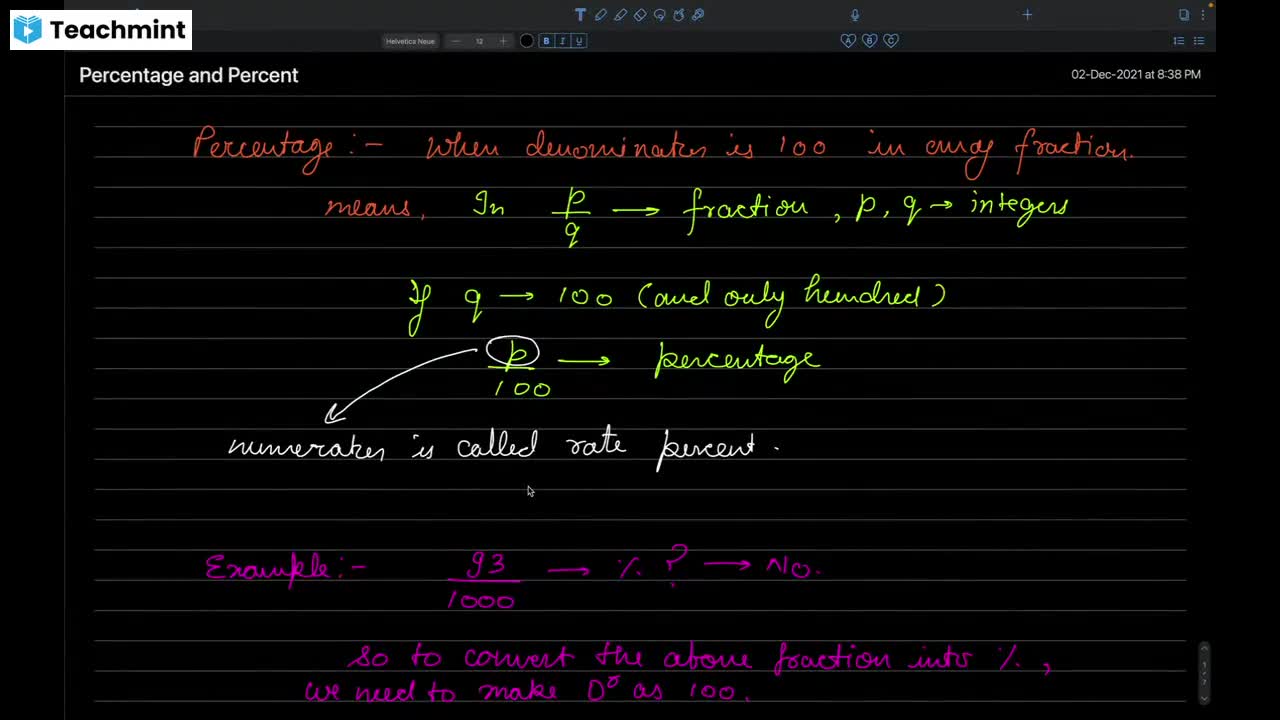 Teachmint
Helvetica Neue
12
B I U
A B C
Percentage and Percent
02-Dec-2021 at 8:38 PM
Percentage :- When denominator is 100 in any fraction.
means, In p/q → fraction, p, q → integers
If q → 100 (and only hundred)
p/100 → percentage
numerator is called rate percent.
Example:- 93/1000 → % ? → No.
So to convert the above fraction into %,
we need to make Dr as 100.